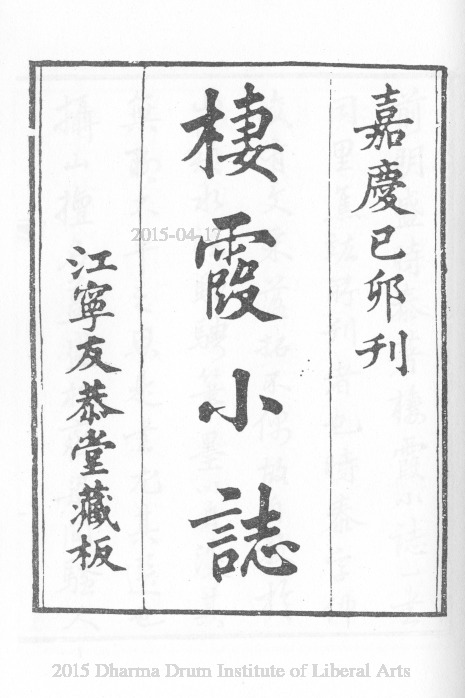 嘉慶己卯刊
棲霞小誌
江寧友恭堂藏板
2015-04-17
2015 Dharma Drum Institute of Liberal Arts